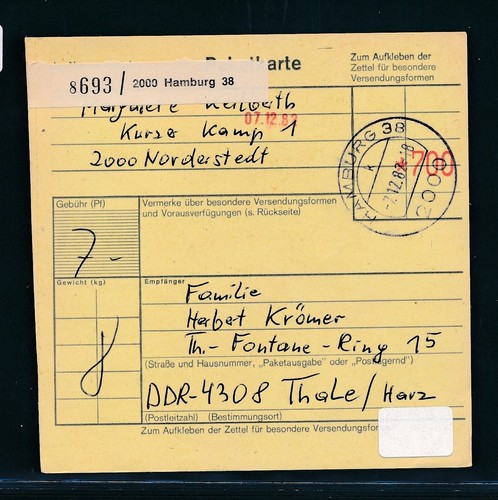 Paketkarte
Zum Aufkleben der
Zettel für besondere
Versendungsformen
8693 / 2000 Hamburg 38
07.12.82
Kurzer Kamp 1
2000 Norderstedt
HAMBURG 38
2000
-7.12.82-18
k
*700
Gebühr (Pf)
7-
Vermerke über besondere Versendungsformen
und Vorausverfügungen (s. Rückseite)
Gewicht (kg)
8
Empfänger
Familie
Herbert Krömer
Th.- Fontane-Ring 15
(Straße und Hausnummer, "Paketausgabe" oder "Postlagernd")
DDR-4308 Thale/Harz
(Postleitzahl) (Bestimmungsort)
Zum Aufkleben der Zettel für besondere Versendungsfor